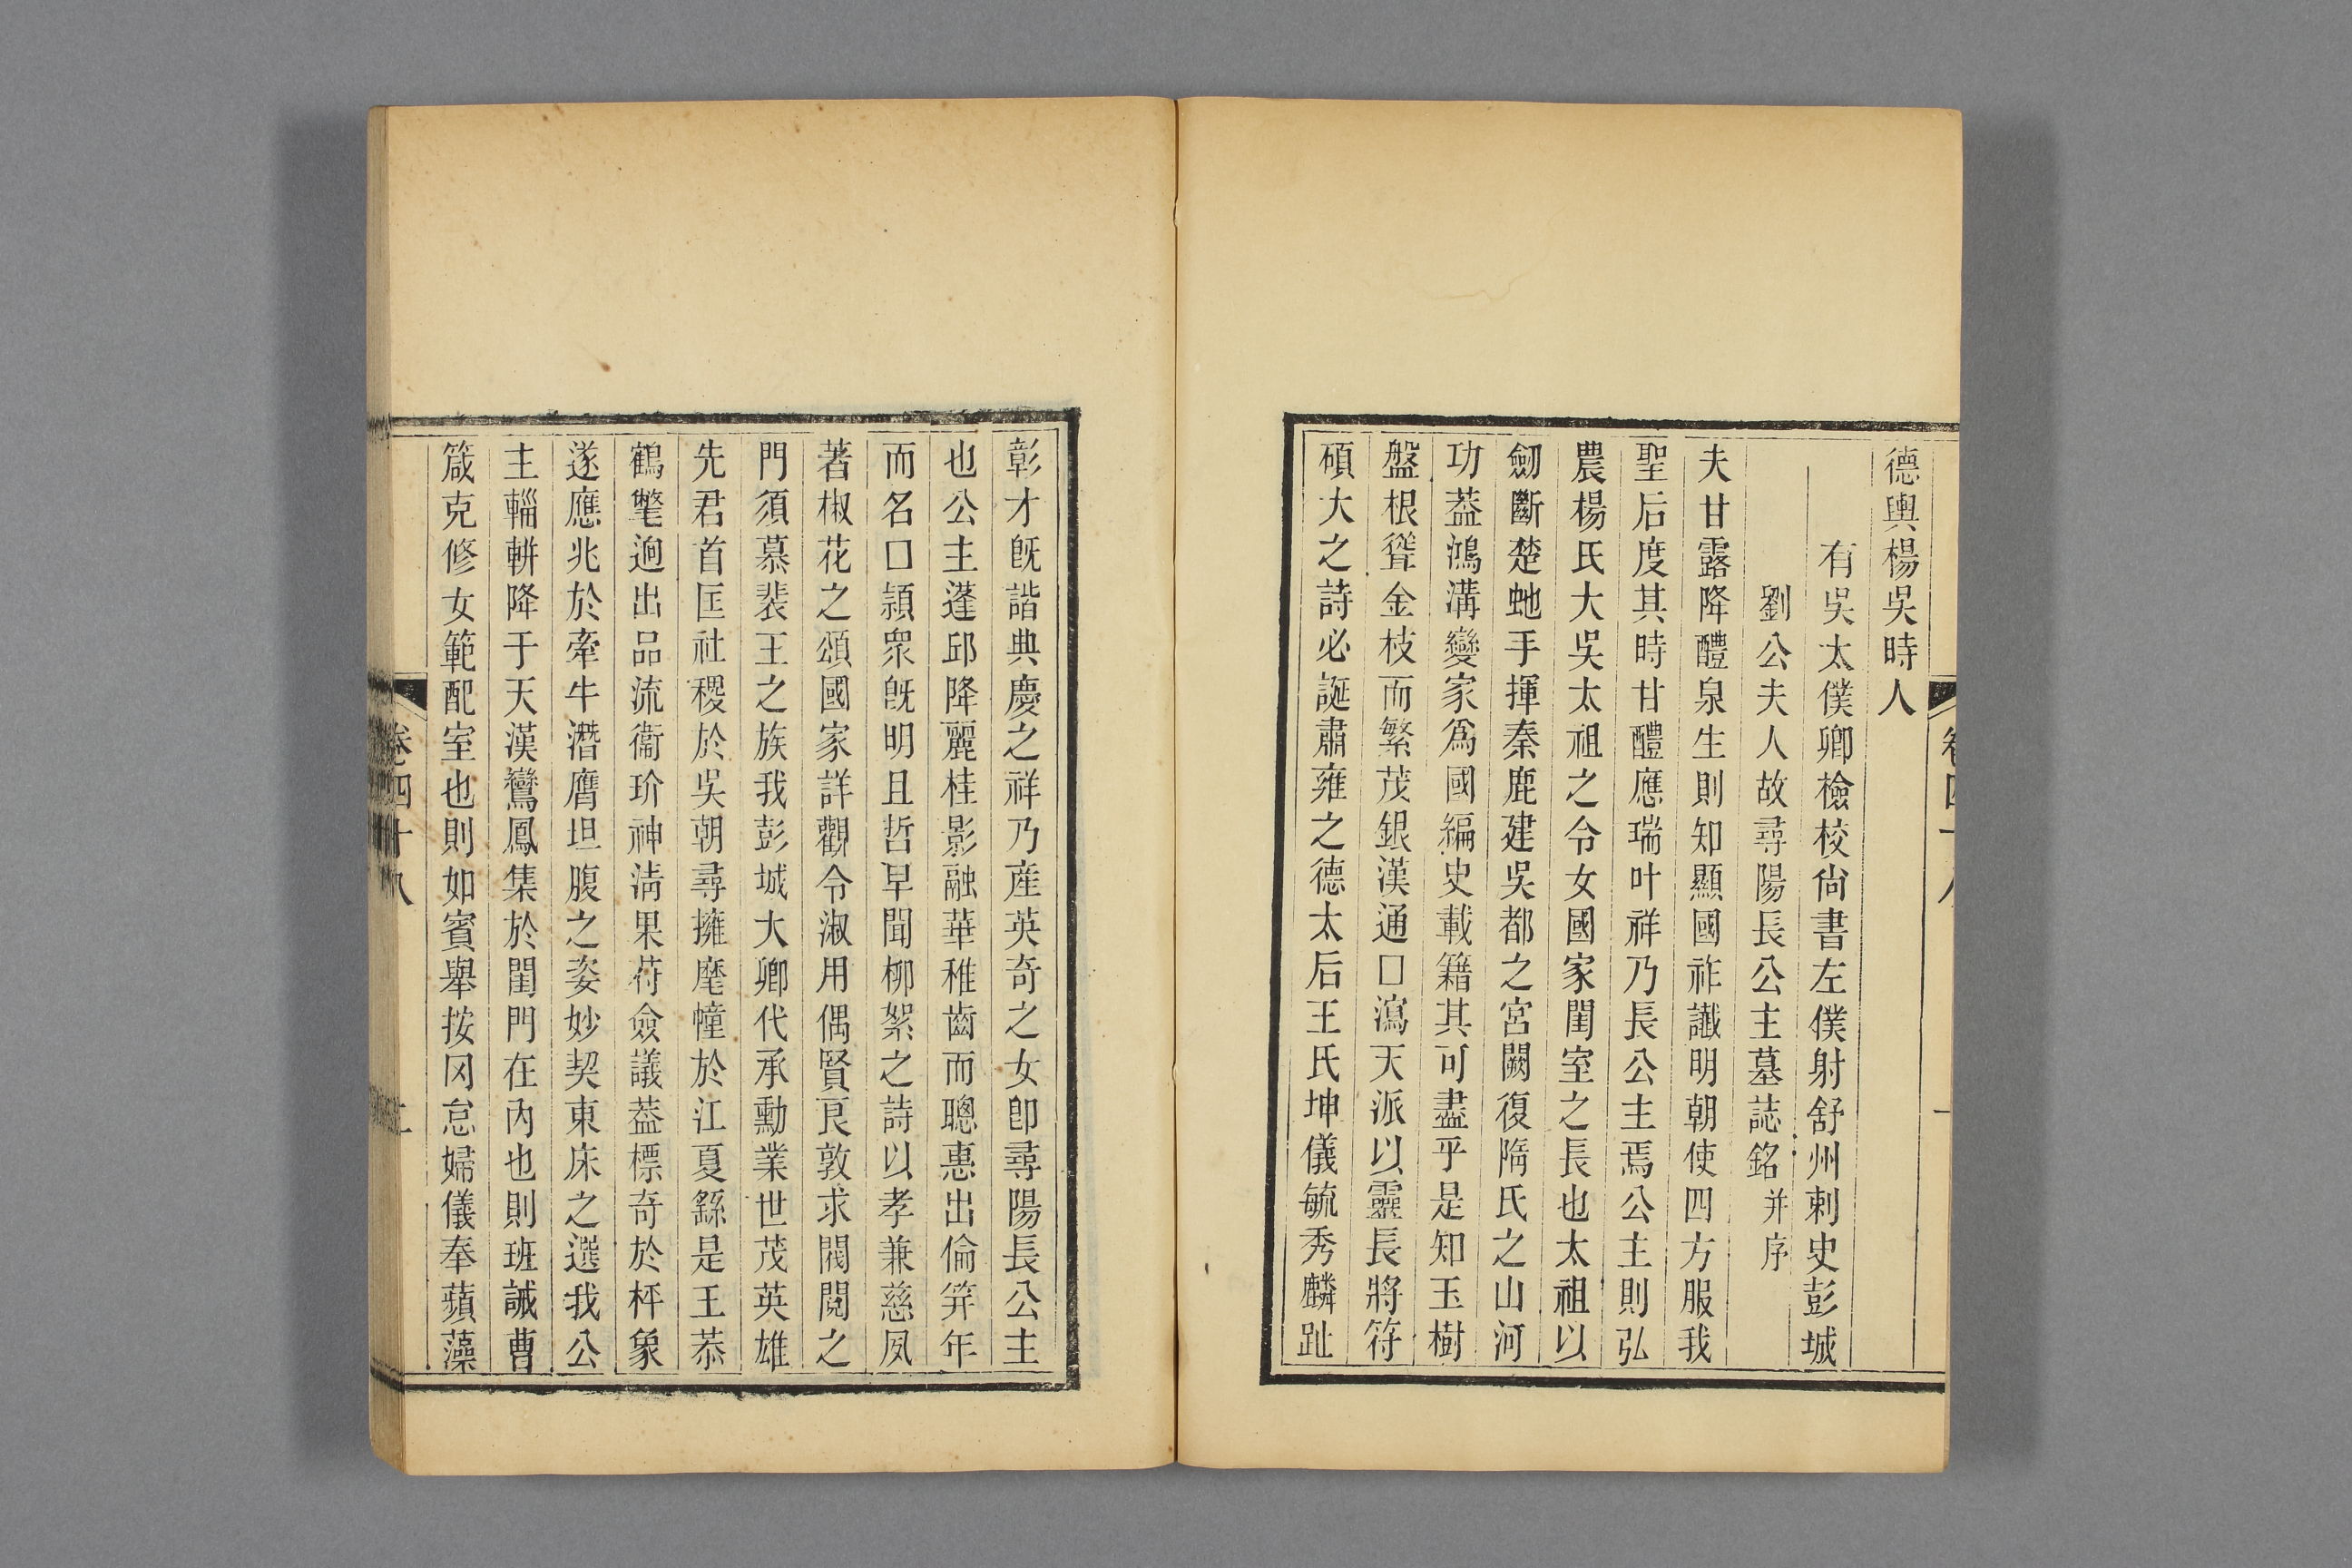 德輿楊吳時人
有吳太僕卿檢校尙書左僕射舒州刺史彭城
劉公夫人故尋陽長公主墓誌銘并序
夫甘露降醴泉生則知顯國祚讖明朝使四方服我
聖后度其時甘醴應瑞叶祥乃長公主焉公主則弘
農楊氏大吳太祖之令女國家閨室之長也太祖以
劒斷楚虵手揮秦鹿建吳都之宮闕復隋氏之山河
功葢鴻溝變家爲國編史載籍其可盡乎是知玉樹
盤根聳金枝而繁茂銀漢通口瀉天派以靈長將符
碩大之詩必誕肅雍之德太后王氏坤儀毓秀麟趾
彰才旣諧典慶之祥乃産英奇之女卽尋陽長公主
也公主蓬邱降麗桂影融華稚齒而聰惠出倫笄年
而名口顈衆旣明且哲早聞柳絮之詩以孝兼慈夙
著椒花之頌國家詳觀令淑用偶賢良敦求閥閱之
門須慕裴王之族我彭城大卿代承勳業世茂英雄
先君首匡社稷於吳朝尋擁麾幢於江夏繇是王恭
鶴氅迥出品流衞玠神淸果苻僉議葢標奇於枰象
遂應兆於牽牛潛膺坦腹之姿妙契東床之選我公
主輜軿降于天漢鸞鳳集於閨門在內也則班誡曹
箴克修女範配室也則如賓舉按冈怠婦儀奉蘋藻
卷四十八